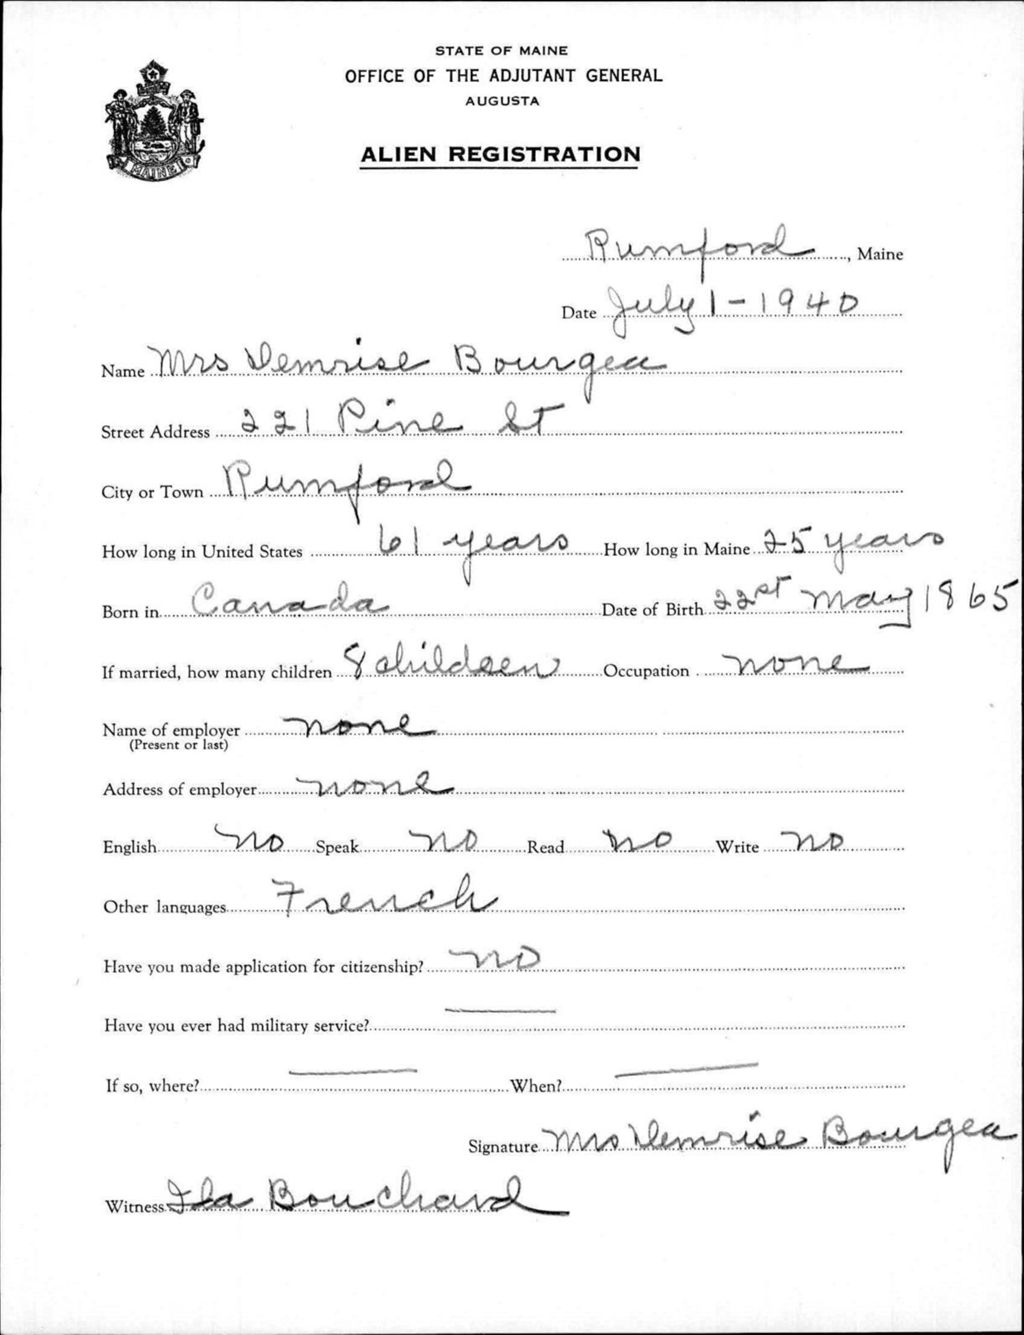 STATE OF MAINE
OFFICE OF THE ADJUTANT GENERAL
AUGUSTA
ALIEN REGISTRATION
MAINE
Rumford, Maine
Date July 1-1940
Name Mrs Demrise Bourgea
Street Address 221 Pine St
City or Town Rumford
How long in United States 61 years How long in Maine 25 years
Born in Canada Date of Birth 22st May 1865
If married, how many children 8 children Occupation none
Name of employer none
(Present or last)
Address of employer none
English no Speak no Read no Write no
Other languages French
Have you made application for citizenship? no
Have you ever had military service? —
If so, where? — When? —
Signature Mrs Demrise Bourgea
Witness Ida Bouchard